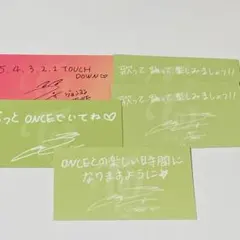 5.4.3.2.1 TOUCH
DOWN♡
歌って踊って楽しみましょう!!
歌って踊って楽しみましょう!!
っと ONCEでいてね♡
ONCEとの楽しい時間に
なりますように♥